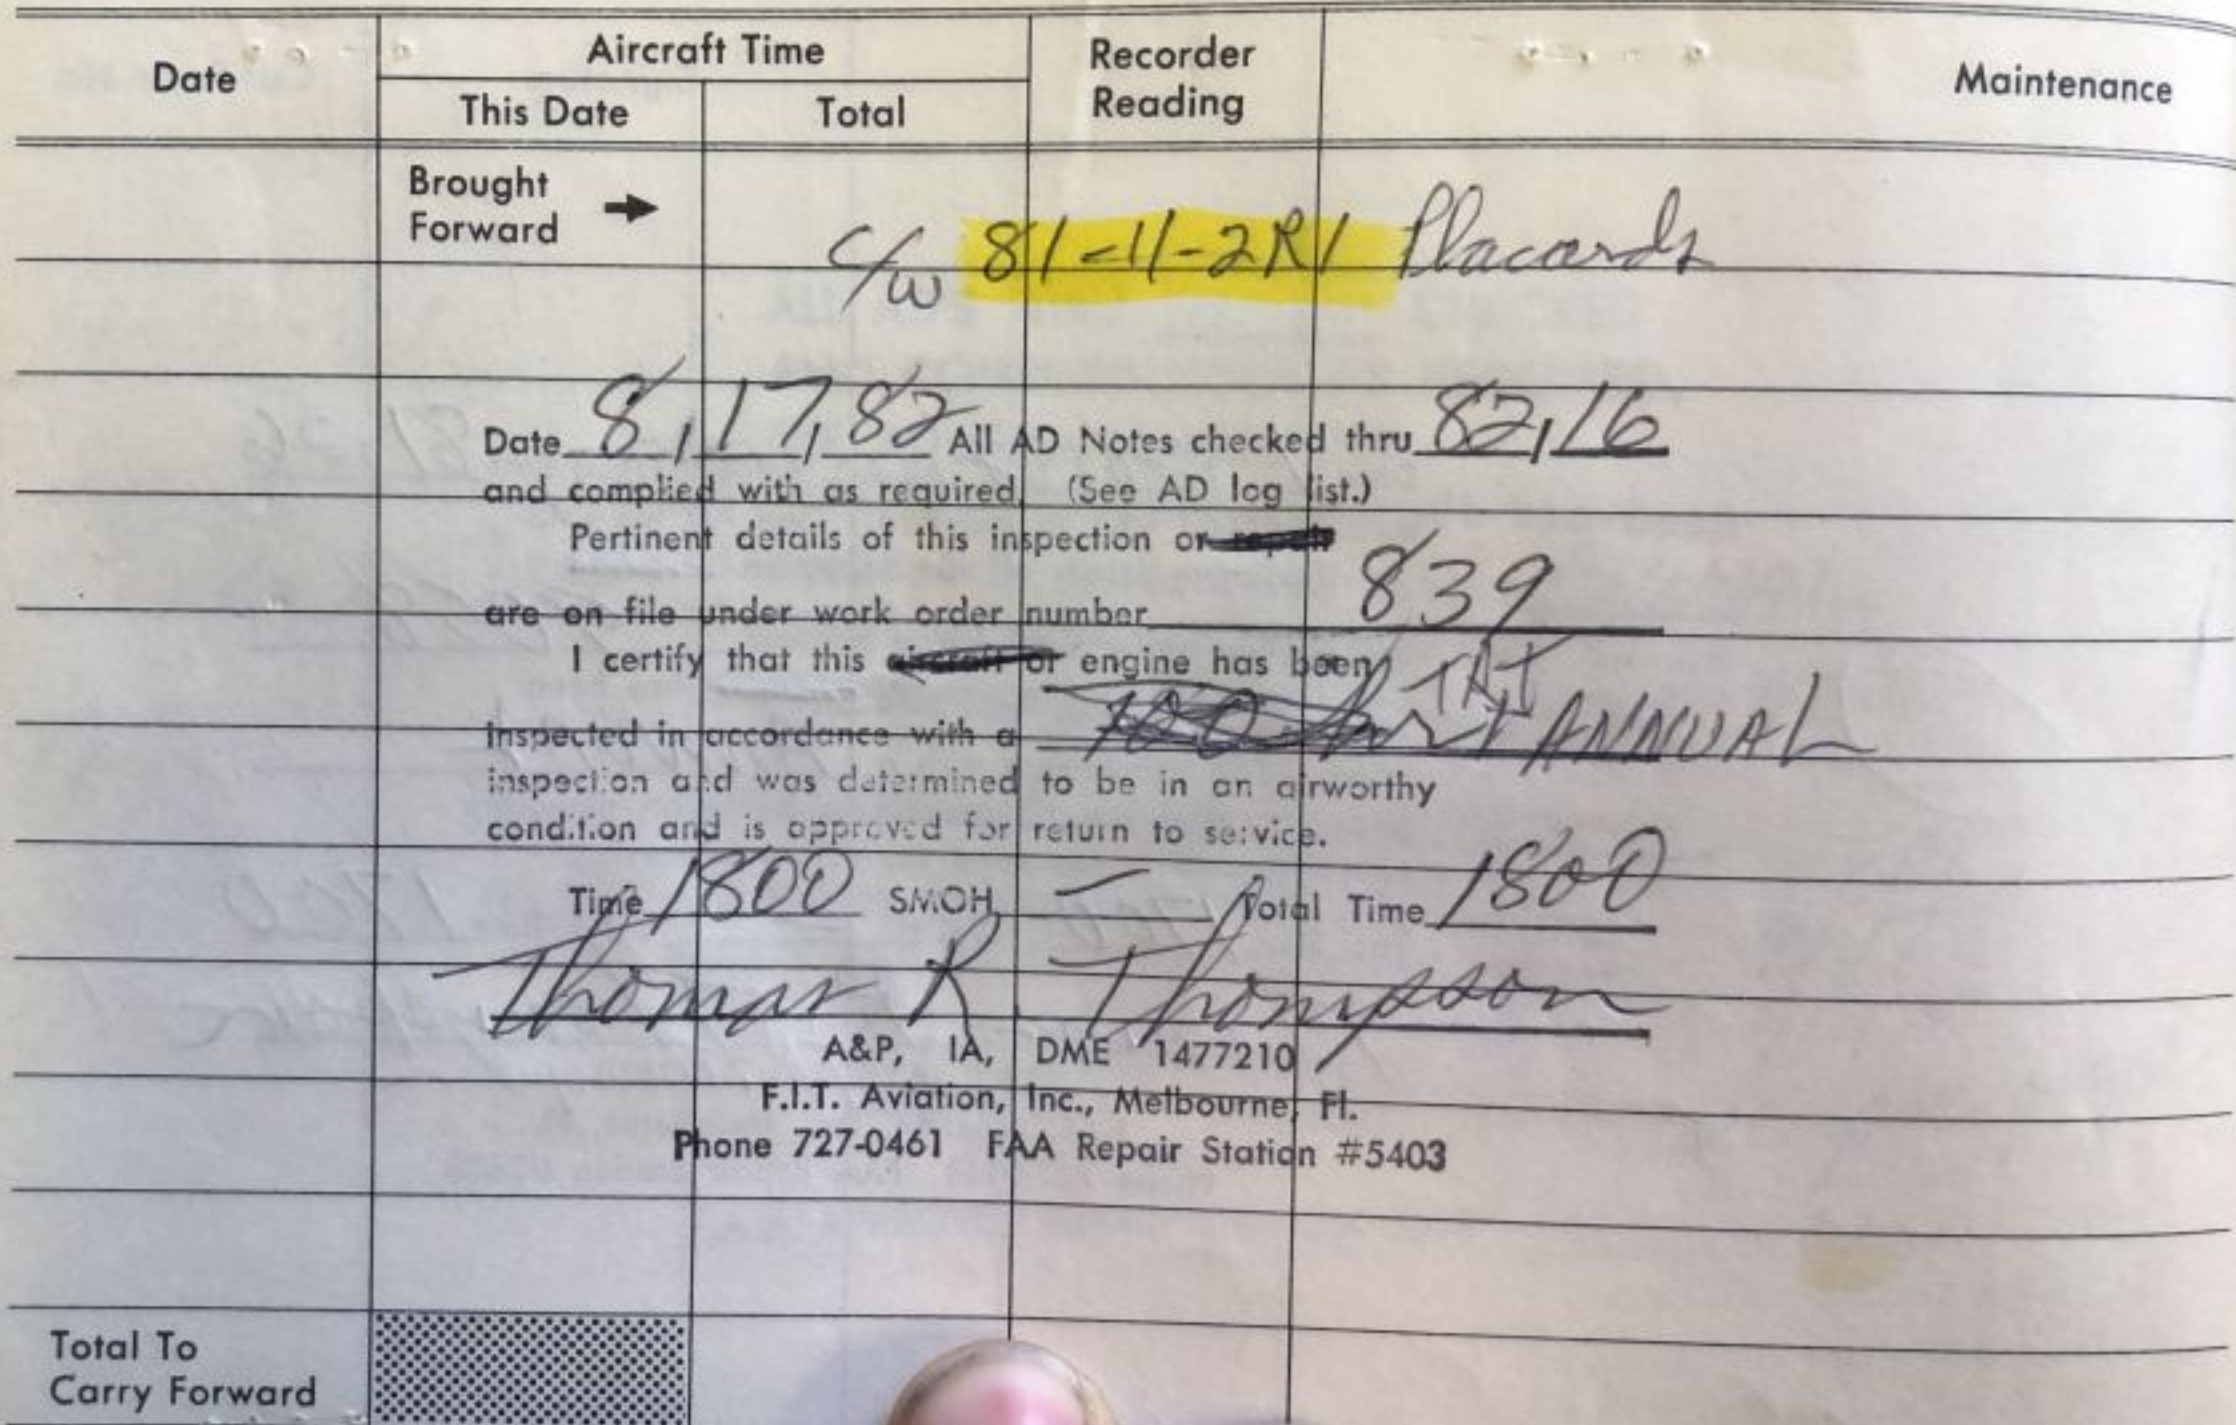 Date Aircraft Time Recorder Reading Maintenance
This Date Total
Brought Forward →
c/w 81-11-2R1 Placards
Date 8,17,82 All AD Notes checked thru 82,16
and complied with as required. (See AD log list.)
Pertinent details of this inspection or repair
are on file under work order number 839
I certify that this aircraft or engine has been
TRT
inspected in accordance with a 100 hr ANNUAL
inspection and was determined to be in an airworthy
condition and is approved for return to service.
Time 1800 SMOH — Total Time 1800
Thomas R Thompson
A&P, IA, DME 1477210
F.I.T. Aviation, Inc., Melbourne, Fl.
Phone 727-0461 FAA Repair Station #5403
Total To
Carry Forward